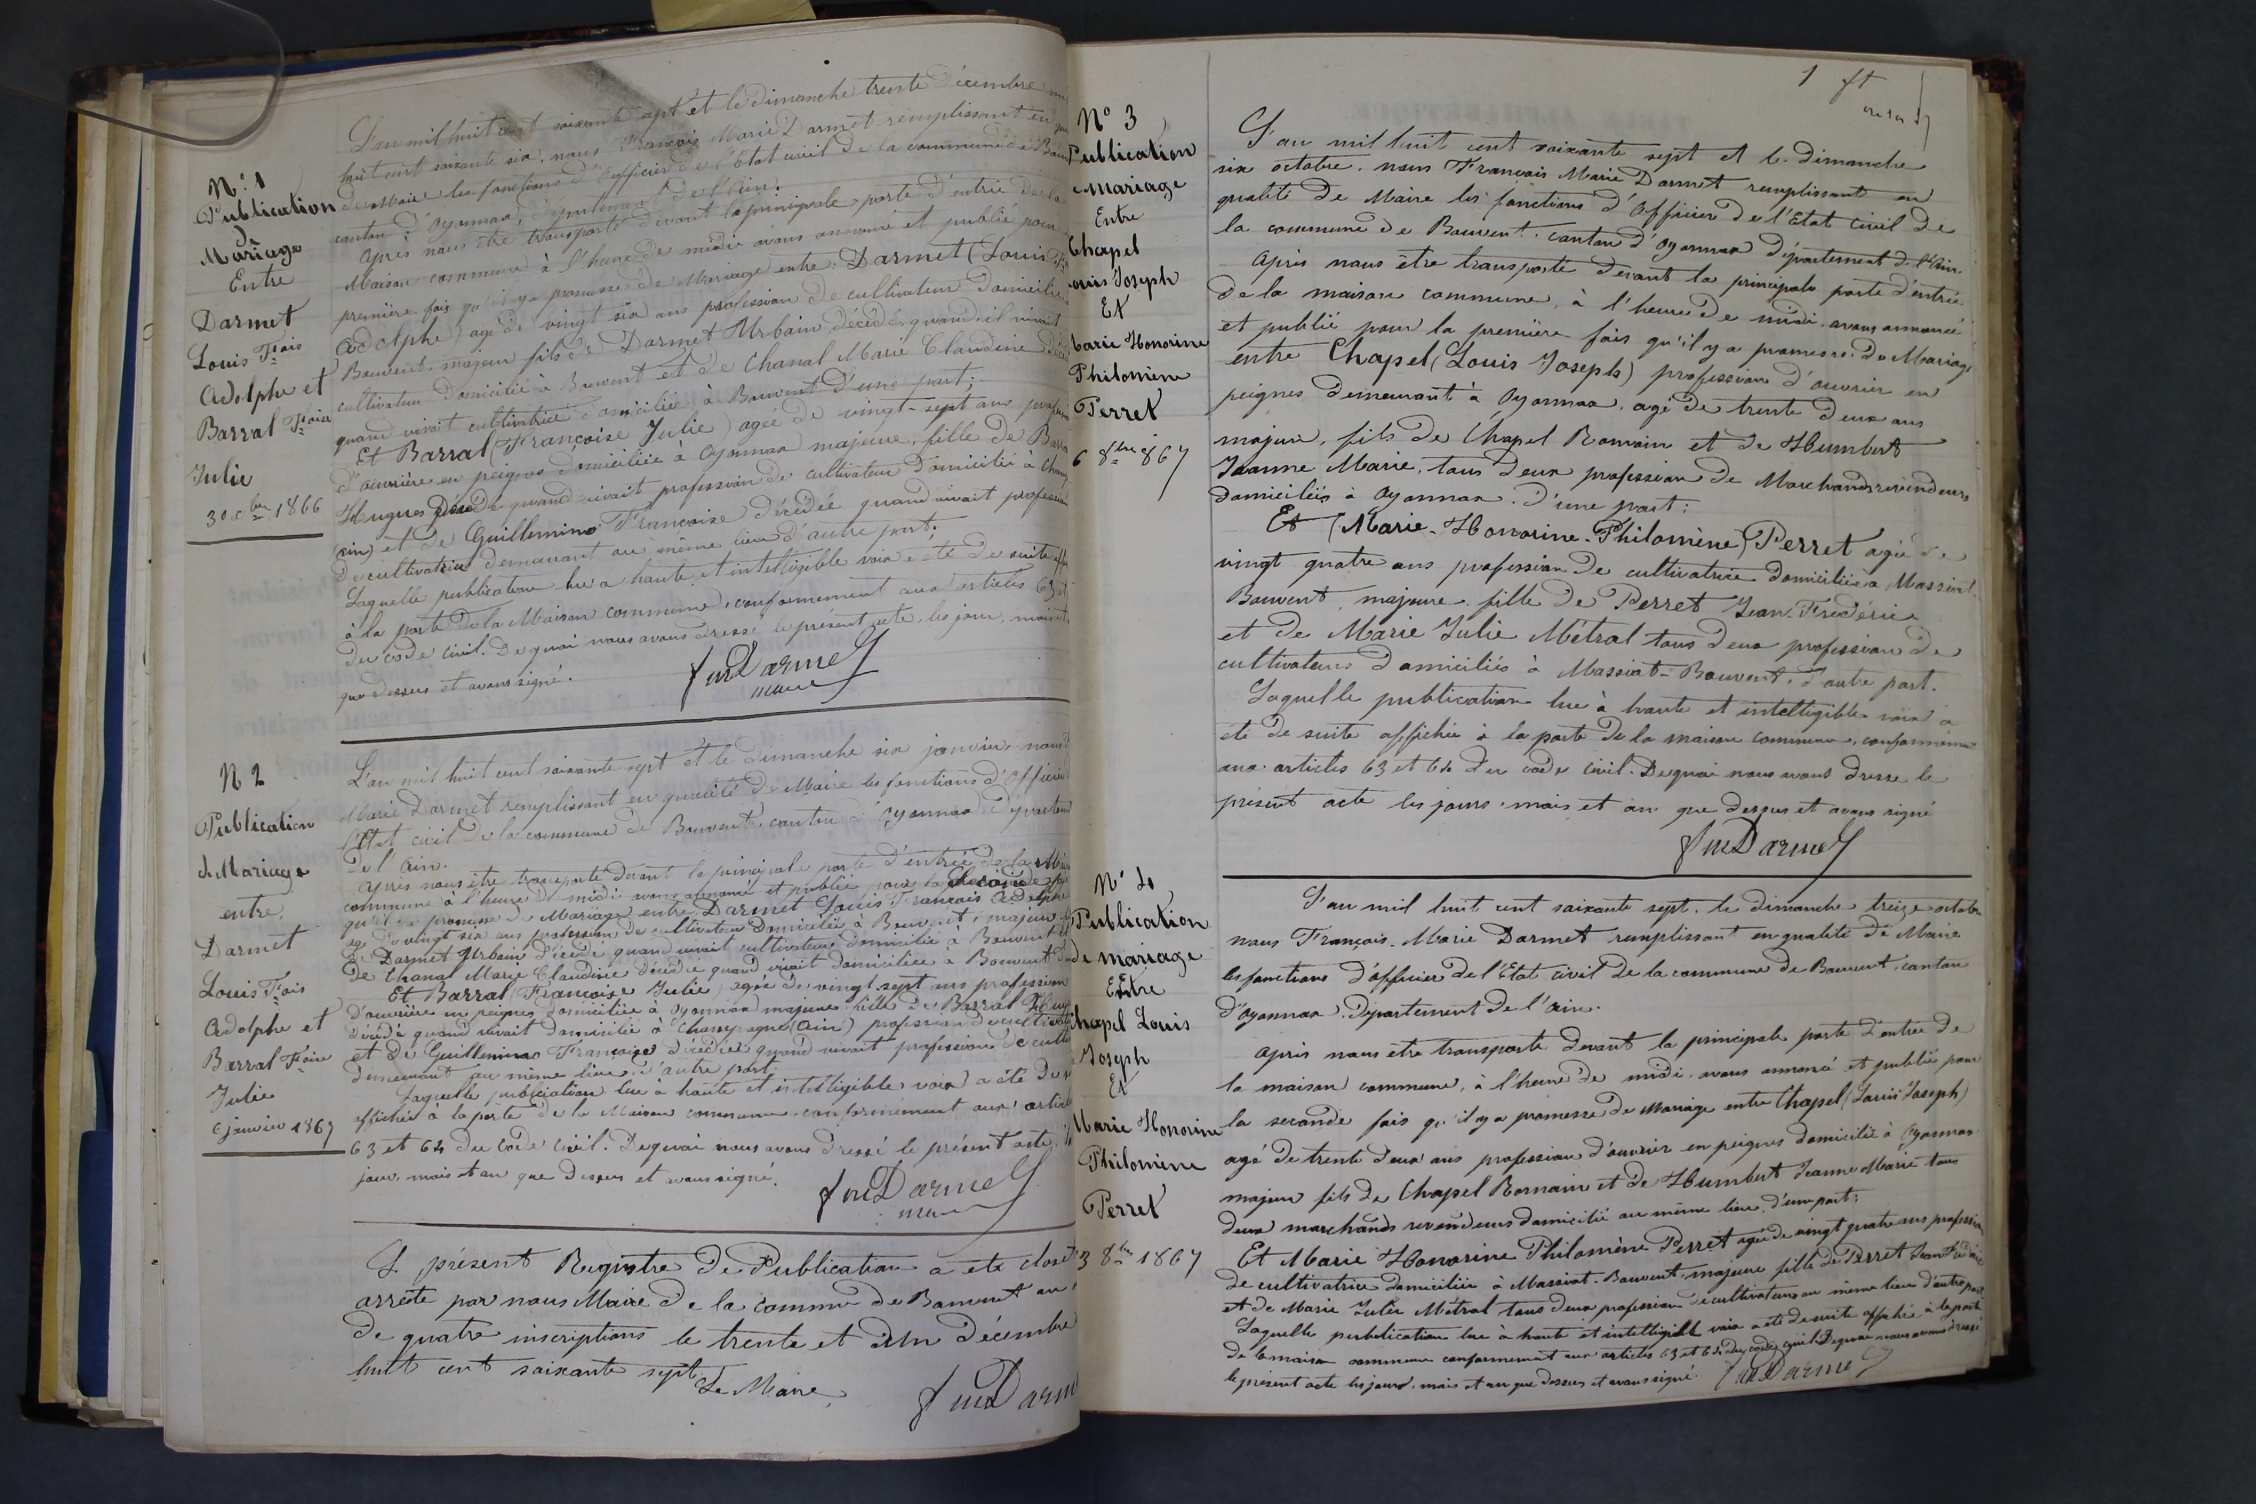 N° 1
Publication
de
Mariage
Entre
Darmet
Louis Fois
Adolphe et
Barral Foise
Julie
30 xbre 1866
L'an mil huit cent soixante sept et le dimanche trente Décembre mil
huit cent soixante six, nous François Marie Darmet remplissant en
de Maire les fonctions d'officier de l'Etat civil de la commune de Bouv
canton d'Oyonnax, département de l'Ain.
Après nous être transporté devant la principale porte d'entrée de la
Maison commune à l'heure de midi avons annoncé et publié pour
première fois qu'il y a promesse de Mariage entre Darmet (Louis
Adolphe) agé de vingt six ans profession de cultivateur domicilié
Bouvent majeur fils de Darmet Urbain décédé quand il vivait
cultivateur domicilié à Bouvent et de Chanal Marie Claudine
quand vivait cultivatrice domiciliée à Bouvent d'une part;
Et Barral (Françoise Julie) agée de vingt-sept ans
d'ouvrière en peignes domiciliée à Oyonnax majeure, fille de
Hugues décédé quand vivait profession de cultivateur domicilié à
(Ain) et de Guillemino Françoise décédée quand vivait profession
de cultivatrice demeurant au même lieu d'autre part;
Laquelle publication lue a haute et intelligible voix a été de suite
à la porte de la Maison commune, conformement aux articles 63 et
du code civil. De quoi nous avons dressé le présent acte les jour, mois et
que dessus et avons signé.
fmDarmet
maire
N° 2
Publication
de Mariage
entre
Darmet
Louis Fois
Adolphe et
Barral Foise
Julie
6 janvier 1867
L'an mil huit cent soixante sept et le dimanche six janvier nous
Marie Darmet remplissant en qualité de Maire les fonctions d'Officier
l'Etat civil de la commune de Bouvent, canton d'Oyonnax
de l'Ain.
Après nous être transporté devant la principale porte d'entrée de la
commune à l'heure de midi avons annoncé et publié pour la seconde
qu'il y a promesse de Mariage entre Darmet Louis François Adolphe
agé de vingt six ans profession de cultivateur domicilié à Bouvent, majeur
de Darmet Urbain décédé quand vivait cultivateur domicilié à Bouvent
de Chanal Marie Claudine décédée quand vivait domiciliée à Bouvent
Et Barral (Françoise Julie) agée de vingt sept ans profession
d'ouvrière en peignes domiciliée à Oyonnax majeure fille de Barral
décédé quand vivait domicilié à Champagne (Ain) profession de
et de Guillemino Françoise décédée quand vivait profession de
demeurant au même lieu d'autre part.
Laquelle publication lue à haute et intelligible voix a été de
affichée à la porte de la Maison commune conformément aux
63 et 64 du code civil. De quoi nous avons dressé le présent acte
jour, mois et an que dessus et avons signé.
fmDarmet
maire
Le présent Registre de Publication a été clos et
arrêté par nous Maire de la Commune de Bouvent au
de quatre inscriptions le trente et Un Décembre
huit cent soixante sept.
Le Maire
fmDarm
1 ft
N° 3
Publication
de Mariage
Entre
Chapel
Louis Joseph
Et
Marie Honorine
Philomène
Perret
6 8bre 1867
L'an mil huit cent soixante sept et le dimanche
six octobre. nous François Marie Darmet remplissant en
qualité de Maire les fonctions d'Officier de l'Etat Civil de
la commune de Bouvent. canton d'Oyonnax département de l'Ain
Après nous être transporté devant la principale porte d'entrée
de la maison commune, à l'heure de midi. avons annoncé
et publié pour la première fois qu'il y a promesse de Mariage
entre Chapel (Louis Joseph) profession d'ouvrier en
peignes demeurant à Oyonnax, agé de trente deux ans
majeur, fils de Chapel Romain et de Humbert
Jeanne Marie, tous deux profession de Marchands revendeurs
domiciliés à Oyonnax. d'une part;
Et (Marie-Honorine-Philomène) Perret agée de
vingt quatre ans profession de cultivatrice domiciliée à Massiat-
Bouvent, majeure fille de Perret Jean-Fréderic
et de Marie Julie Métral tous deux profession de
cultivateurs domiciliés à Massiat-Bouvent, d'autre part.
Laquelle publication lue à haute et intelligible voix a
été de suite affichée à la porte de la maison commune, conformément
aux articles 63 et 64 du code civil. De quoi nous avons dressé le
présent acte les jours, mois et an que dessus et avons signé
fmDarmet
N° 4
Publication
de mariage
Entre
Chapel Louis
Joseph
Et
Marie Honorine
Philomène
Perret
3 8bre 1867
L'an mil huit cent soixante sept. le dimanche treize octobre
nous François-Marie Darmet remplissant en qualité de Maire
les fonctions d'officier de l'Etat civil de la commune de Bouvent, canton
d'Oyonnax, département de l'Ain.
Après nous être transporté devant la principale porte d'entrée de
la maison commune, à l'heure de midi, avons annoncé et publié pour
la seconde fois qu'il y a promesse de Mariage entre Chapel (Louis Joseph)
agé de trente deux ans profession d'ouvrier en peignes domicilié à Oyonnax
majeur fils de Chapel Romain et de Humbert Jeanne Marie tous
deux marchands revendeurs domicilié au même lieu, d'une part;
Et Marie Honorine Philomène Perret agée de vingt quatre ans profession
de cultivatrice domiciliée à Massiat-Bouvent, majeure fille de Perret Jean Fréderic
et de Marie Julie Métral tous deux profession de cultivateurs au même lieu d'autre part
Laquelle publication lue à haute et intelligible voix a été de suite affichée à la porte
de la maison commune conformement aux articles 63 et 64 du code civil. De quoi nous avons dressé
le présent acte les jours, mois et an que dessus et avons signé. fmDarmet